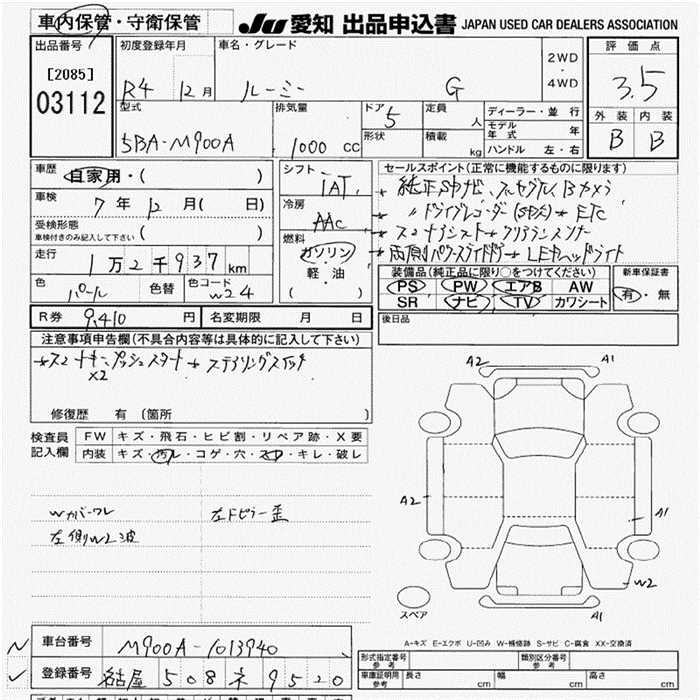 車内保管・守衛保管 JU 愛知 出品申込書 JAPAN USED CAR DEALERS ASSOCIATION
出品番号 初度登録年月 車名・グレード 2WD・4WD 評価点
[2085]
03112
R4 12月 ルーミー G 3.5
型式 排気量 ドア 5 定員 人 ディーラー・並行 外装 内装
モデル年式 年
5BA-M900A 1000 CC 形状 積載 kg ハンドル 左・右 B B
車歴 自家用・( )
シフト IAT
セールスポイント(正常に機能するものに限ります)
車検 7年12月( 日)
冷房 AAC
受検形態 ( )
車検付きのみ記入して下さい
燃料 ガソリン
軽・油
( )
*純正SDナビ、フルセグTV、Bカメラ
* 〃ドライブレコーダー * ETC
*スマートアシスト *クリアランスソナー
*両側パワースライドドア *LEDヘッドライト
走行 1万2千937km
色 パール 色替 色コード W24
装備品(純正品に限り○をつけてください) 新車保証書
PS PW エアB AW 有・無
SR ナビ TV カワシート
R券 9,410 円 名変期限 月 日
後日品
注意事項申告欄(不具合内容等は具体的に記入して下さい)
*スマートキー、プッシュスタート *ステアリングスイッチ
×2
修復歴 有 (箇所 )
検査員記入欄 FW キズ・飛石・ヒビ割・リペア跡・X要
内装 キズ・汚レ・コゲ・穴・スレ・キレ・破レ
A2 A1
A2 A1
Wカバーワレ 左Fピラー歪
左側W2波
W2
A1
スペア
A-キズ E-エクボ U-凹み W-補修跡 S-サビ C-腐食 XX-交換済
車台番号 M900A-1013940
登録番号 名古屋 508 ネ 9520
形式指定番号 参考 類別区分番号 参考
車庫証明用 参考 長さ cm 幅 cm 高さ cm